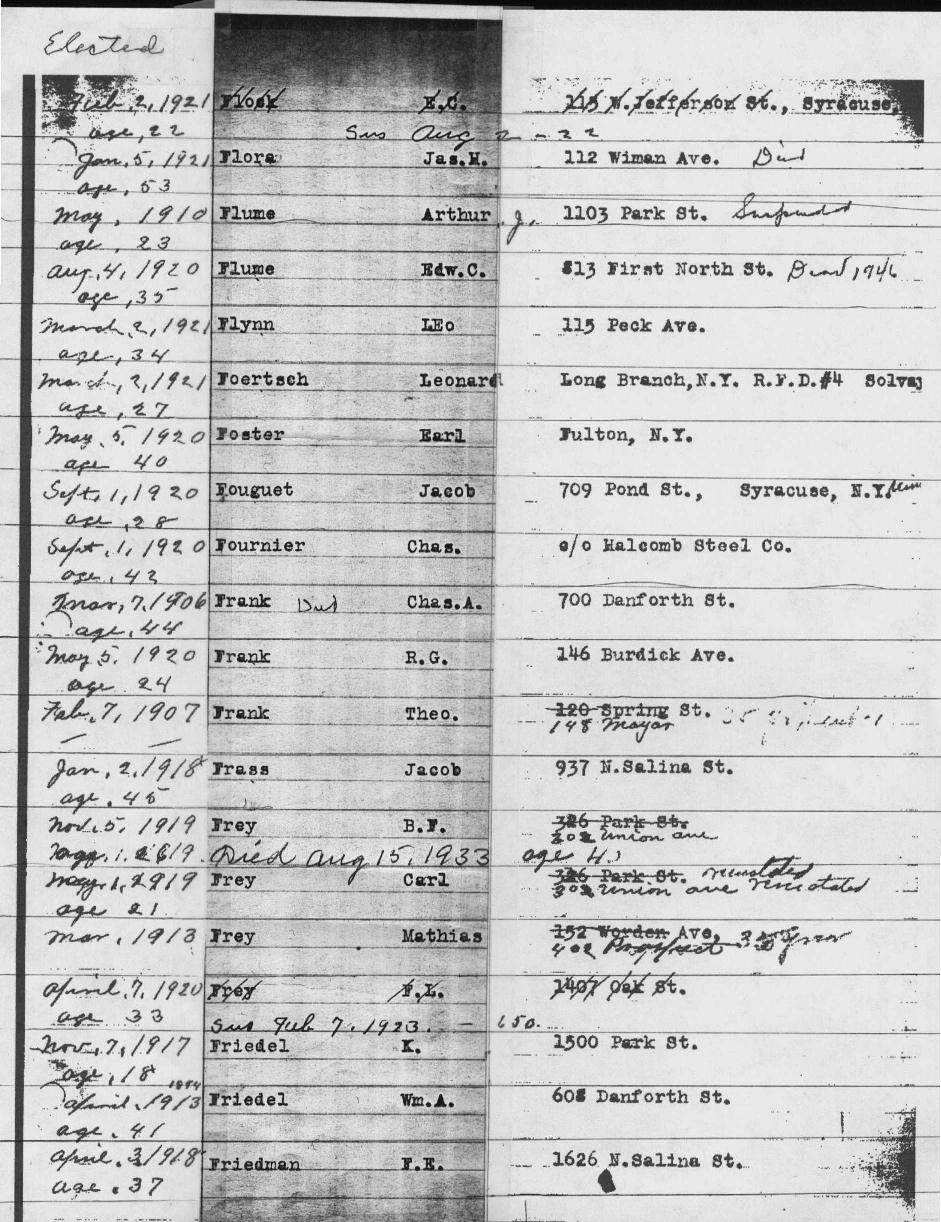 Elected
Feb. 2, 1921 Flock E.C. 115 N. Jefferson St., Syracuse,
age, 22 Sus Aug 2 - 22
Jan. 5, 1921 Flora Jas.H. 112 Wiman Ave. Died
age, 53
May, 1910 Flume Arthur J. 1103 Park St. Suspended
age, 23
Aug. 4, 1920 Flume Edw.C. 813 First North St. Died 1946
age, 35
March, 2, 1921 Flynn LEo 115 Peck Ave.
age, 34
March, 2, 1921 Foertsch Leonard Long Branch,N.Y. R.F.D.#4 Solvay
age, 27
May. 5, 1920 Foster Earl Fulton, N.Y.
age 40
Sept. 1, 1920 Fouguet Jacob 709 Pond St., Syracuse, N.Y.
age, 28
Sept. 1, 1920 Fournier Chas. c/o Halcomb Steel Co.
age, 42
Mar, 7, 1906 Frank Died Chas.A. 700 Danforth St.
age, 44
May 5, 1920 Frank R.G. 146 Burdick Ave.
age 24
Feb. 7, 1907 Frank Theo. 120 Spring St.
— — 148 Mayar
Jan, 2, 1918 Frass Jacob 937 N.Salina St.
age. 45
Nov. 5, 1919 Frey B.F. 326 Park St.
202 Union ave
Died Aug 15, 1933 age 4
May, 1, 1919 Frey Carl 326 Park St. reinstated
age 21 302 Union ave reinstated
Mar, 1913 Frey Mathias 152 Worden Ave,
402 Prospect
April. 7, 1920 Frey F.L. 1407 Oak St.
age 33 Sus Feb 7, 1923. — 650.
Nov, 7, 1917 Friedel K. 1500 Park St.
age, 18
April, 1913 Friedel Wm.A. 608 Danforth St.
age. 41
April. 3, 1918 Friedman F.E. 1626 N.Salina St.
age. 37